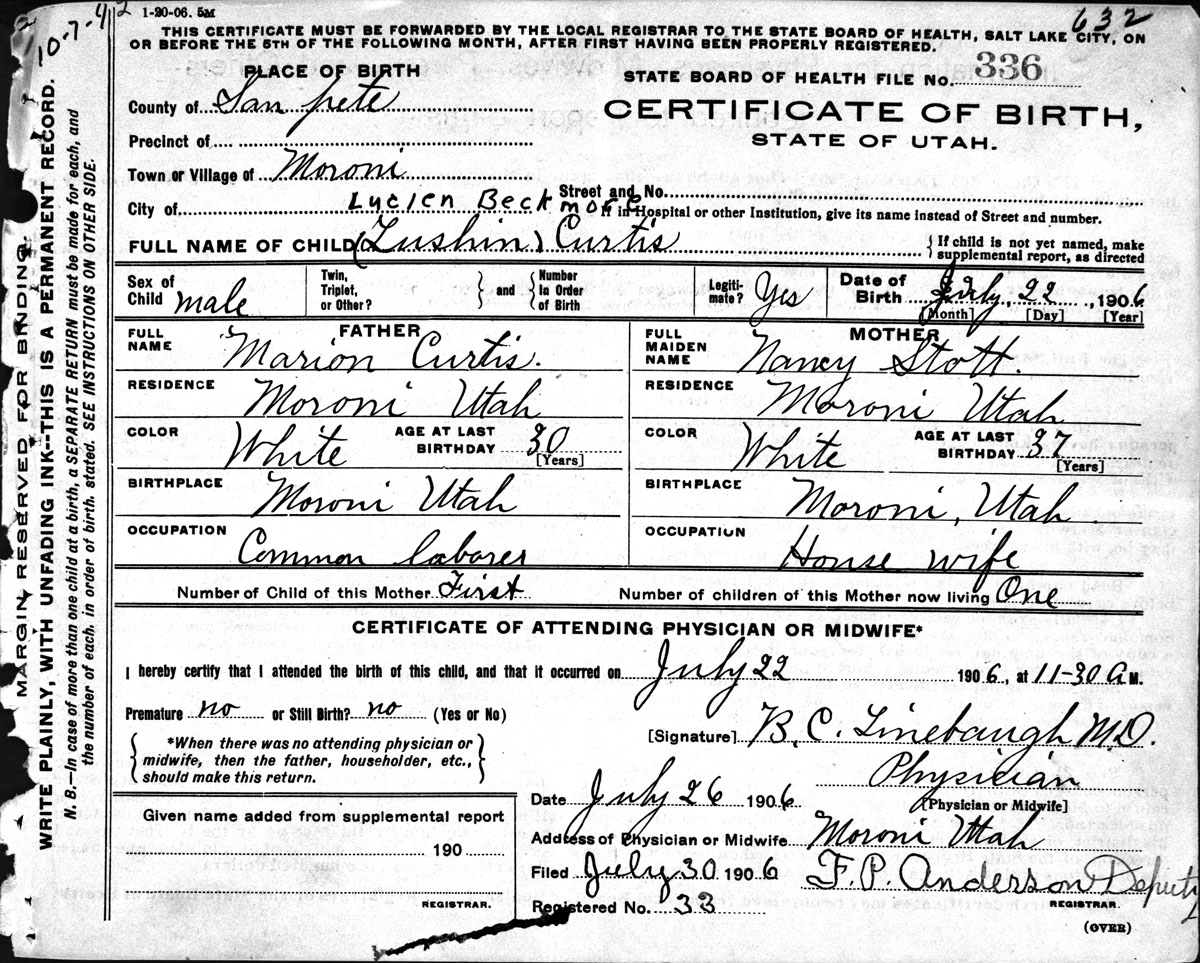 10-7-42
1-20-06. 5M
632
THIS CERTIFICATE MUST BE FORWARDED BY THE LOCAL REGISTRAR TO THE STATE BOARD OF HEALTH, SALT LAKE CITY, ON
OR BEFORE THE 5TH OF THE FOLLOWING MONTH, AFTER FIRST HAVING BEEN PROPERLY REGISTERED.
MARGIN RESERVED FOR BINDING
WRITE PLAINLY, WITH UNFADING INK--THIS IS A PERMANENT RECORD.
N. B.—In case of more than one child at a birth, a SEPARATE RETURN must be made for each, and
the number of each, in order of birth, stated. SEE INSTRUCTIONS ON OTHER SIDE.
PLACE OF BIRTH
County of San pete
Precinct of
Town or Village of Moroni
City of
STATE BOARD OF HEALTH FILE No. 336
CERTIFICATE OF BIRTH,
STATE OF UTAH.
Street and No.
If in Hospital or other Institution, give its name instead of Street and number.
Lucien Beckmore
FULL NAME OF CHILD (Lushin) Curtis
If child is not yet named, make
supplemental report, as directed
Sex of Child male
Twin, Triplet, or Other?
and
Number In Order of Birth
Legiti- mate? Yes
Date of Birth July, 22, 1906
[Month] [Day] [Year]
FATHER
FULL NAME Marion Curtis.
RESIDENCE Moroni Utah
COLOR White AGE AT LAST BIRTHDAY 30 [Years]
BIRTHPLACE Moroni Utah
OCCUPATION Common laborer
MOTHER
FULL MAIDEN NAME Nancy Stott.
RESIDENCE Moroni Utah
COLOR White AGE AT LAST BIRTHDAY 37 [Years]
BIRTHPLACE Moroni, Utah.
OCCUPATION House wife
Number of Child of this Mother First Number of children of this Mother now living One
CERTIFICATE OF ATTENDING PHYSICIAN OR MIDWIFE*
I hereby certify that I attended the birth of this child, and that it occurred on July 22 1906, at 11-30 A M.
Premature no or Still Birth? no (Yes or No)
*When there was no attending physician or
midwife, then the father, householder, etc.,
should make this return.
[Signature] B. C. Linebaugh M.D.
Physician
[Physician or Midwife]
Date July 26 1906
Address of Physician or Midwife Moroni Utah
Filed July 30 1906 F. P. Anderson Deputy
REGISTRAR.
Registered No. 33
(OVER)
Given name added from supplemental report
190
REGISTRAR.